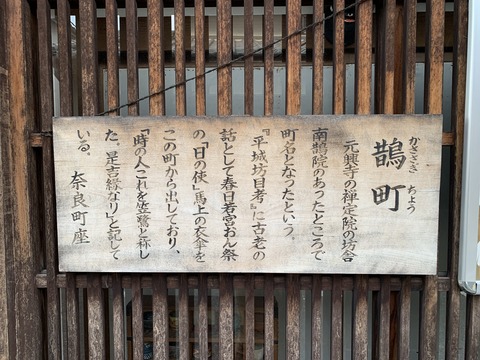 かささぎ ちょう
鵲町
元興寺の禅定院の坊舎
南鵲院のあったところで
町名となったという。
『平城坊目考』に古老の
話として春日若宮おん祭
の「日の使」馬上の衣傘を
この町から出しており、
「時の人これを笠鷺と称し
た。是吉縁なり」と記して
いる。
奈良町座